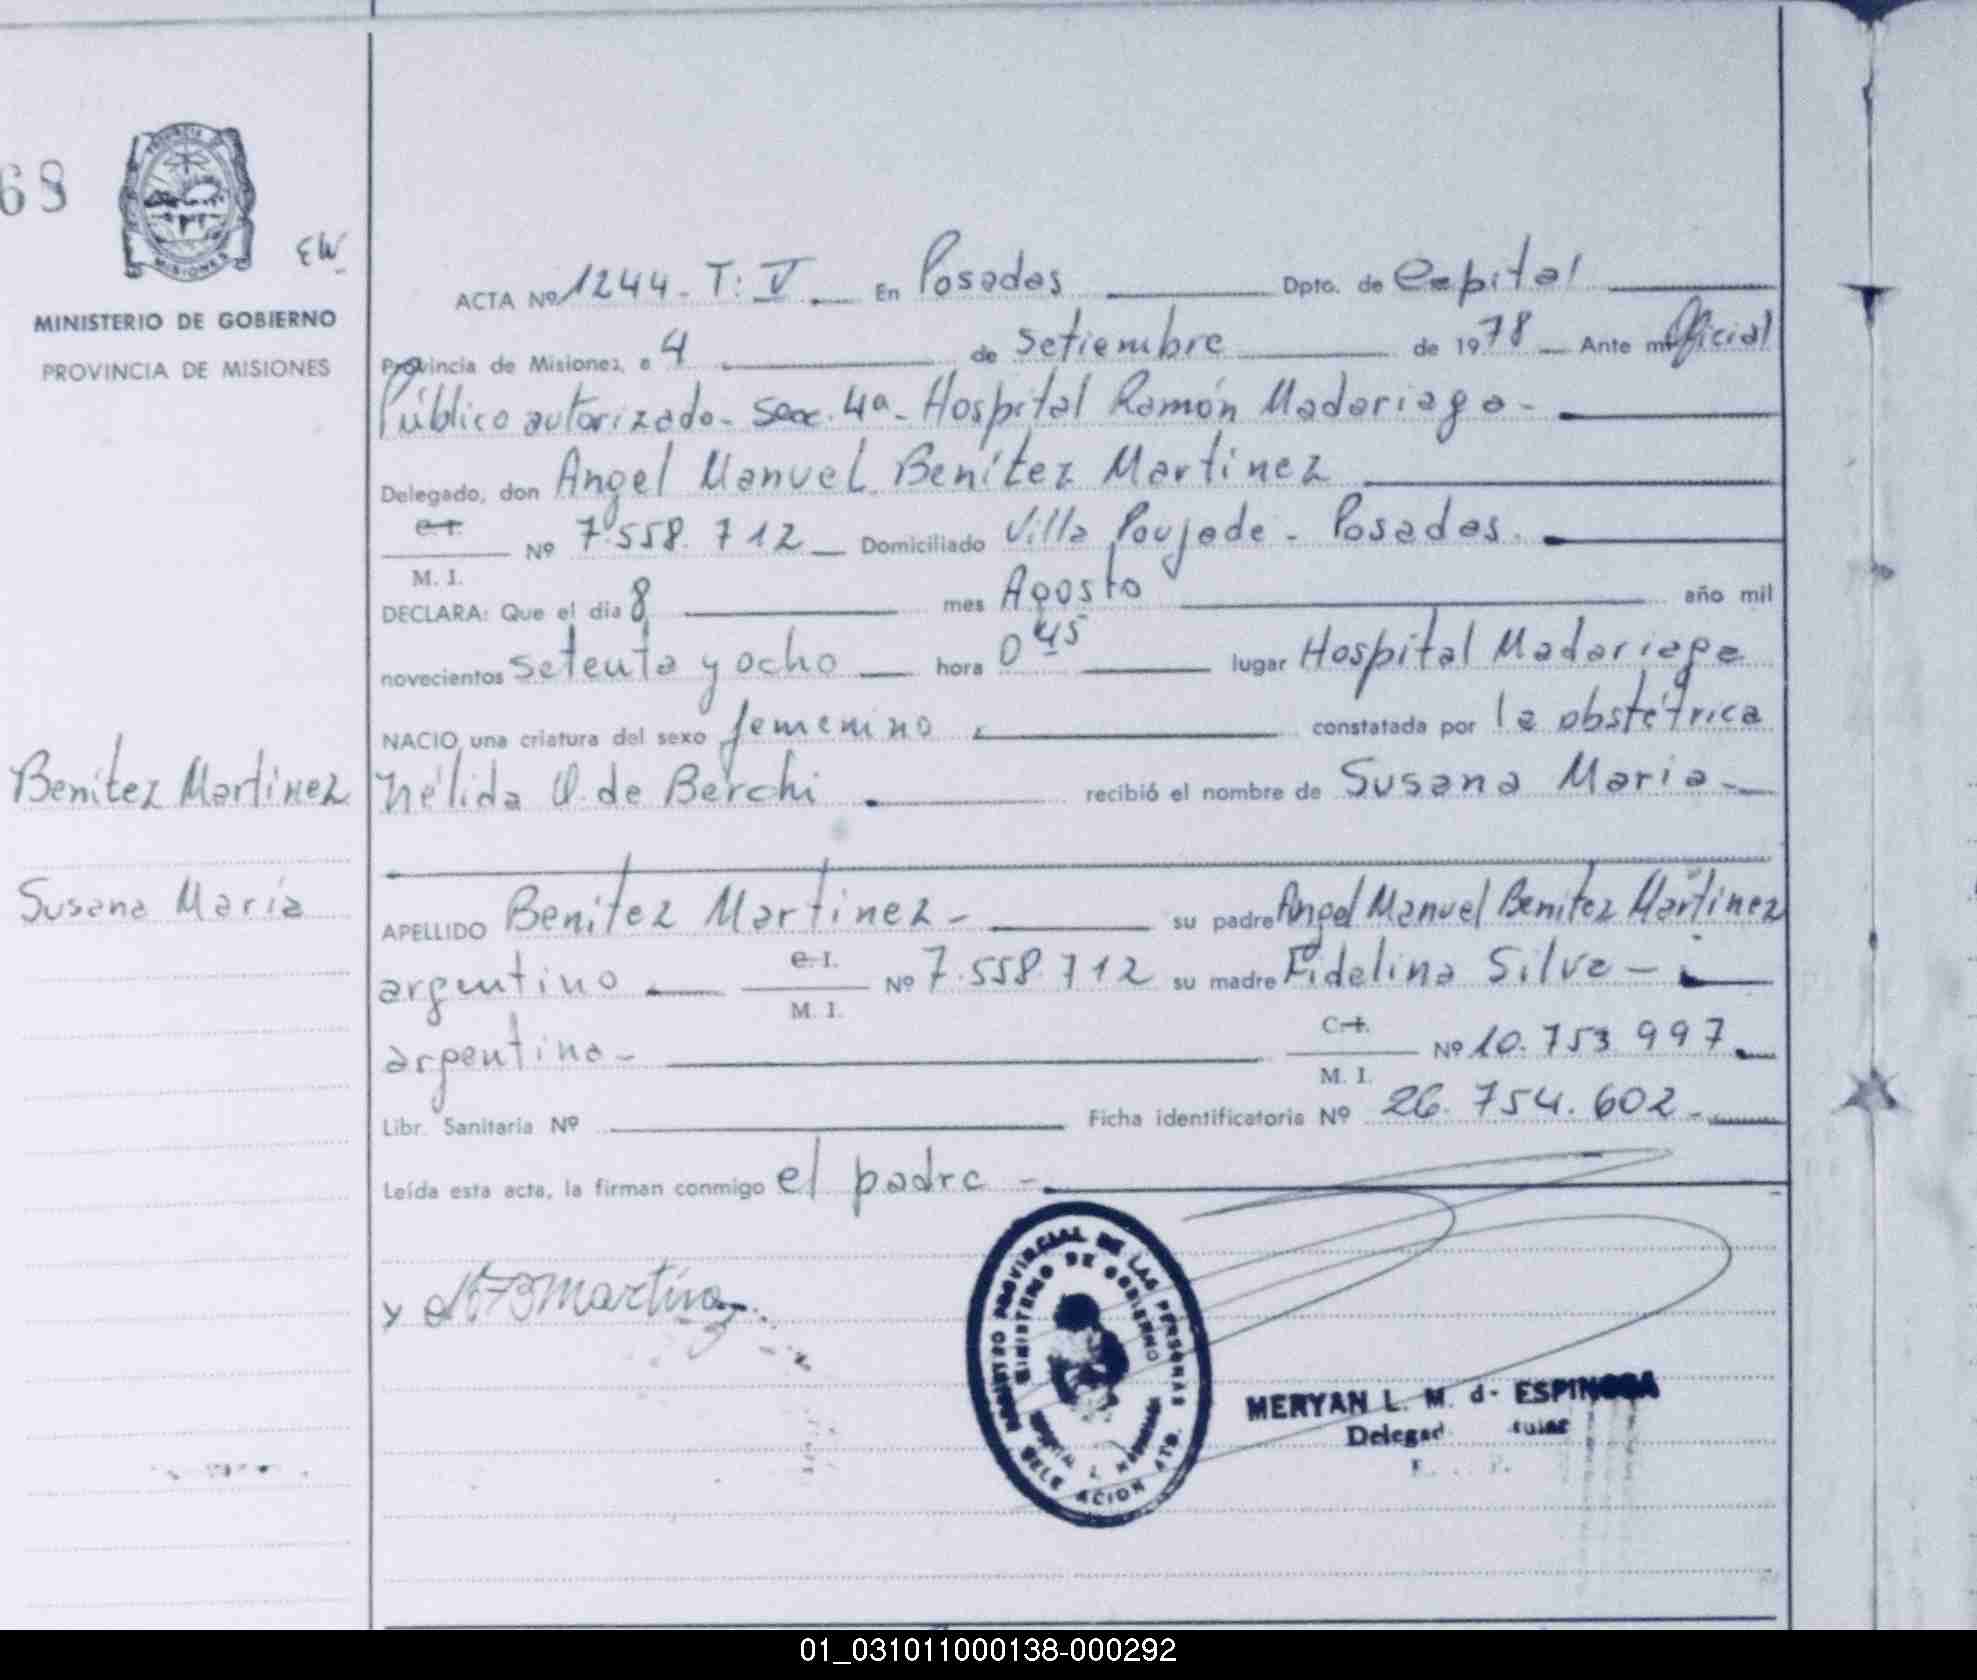 68
PROVINCIA DE
MISIONES
EW
MINISTERIO DE GOBIERNO
PROVINCIA DE MISIONES
ACTA Nº 1244 - T: V. En Posadas Dpto. de Capital
Provincia de Misiones, a 4 de Setiembre de 1978 Ante mí Oficial
Público autorizado - Secc. 4a - Hospital Ramón Madariaga -
Delegado, don Angel Manuel Benítez Martinez
C. I.
Nº 7.558.712 Domiciliado Villa Poujade - Posadas.
M. I.
DECLARA: Que el día 8 mes Agosto año mil
novecientos setenta y ocho hora 0 45 lugar Hospital Madariaga
NACIO una criatura del sexo femenino constatada por la obstétrica
Nélida O. de Berchi recibió el nombre de Susana Maria -
Benítez Martinez
Susana María
APELLIDO Benítez Martinez - su padre Angel Manuel Benitez Martinez
argentino C. I. Nº 7.558.712 su madre Fidelina Silva -
M. I.
argentina - C. I. Nº 10.753.997.
M. I.
Libr. Sanitaria Nº Ficha identificatoria Nº 26.754.602 -
Leída esta acta, la firman conmigo el padre -
REGISTRO PROVINCIAL DE LAS PERSONAS
MINISTERIO DE GOBIERNO
MERYAN L. M. d- ESPINOSA
01_031011000138-000292